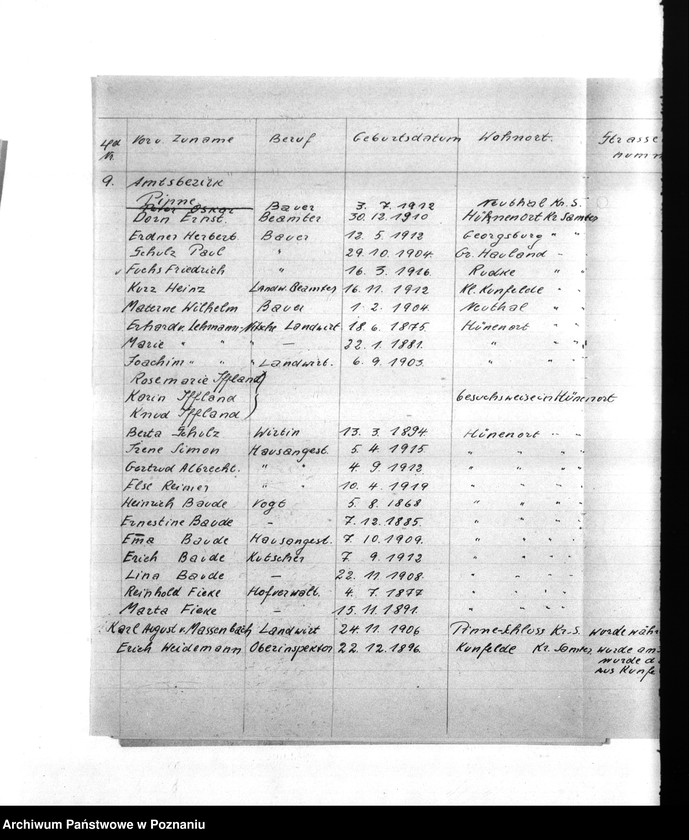 Lfd Nr. Vor u. Zuname Beruf Geburtsdatum Wohnort. Strasse numm
9. Amtsbezirk
Pinne
Bauer 3. 7. 1912 Neuthal Kr. S.
Dorn Ernst. Beamter 30. 12. 1910 Hühnenort Kr. Samter
Erdner Herbert Bauer 12. 5. 1912 Georgsburg " "
Schulz Paul " 29. 10. 1904. Gr. Hauland " "
Fuchs Friedrich " 16. 3. 1916. Rudke " "
Kurz Heinz Landw. Beamter 16. 11. 1912 Kl. Kunfelde " "
Materne Wilhelm Bauer 1. 2. 1904. Neuthal " "
Erhard v. Lehmann-Nitsche Landwirt 18. 6. 1875 Hünenort " "
Marie " " " — 22. 1. 1881. " " "
Joachim " " " Landwirt. 6. 9. 1903. " " "
Rosemarie Iffland
Karin Iffland besuchsweise in Hünenort
Knud Iffland
Berta Schulz Wirtin 13. 3. 1894. Hünenort " "
Irene Simon Hausangest. 5. 4. 1915 " " " "
Gertrud Albrecht. " " 4. 9. 1912 " " " "
Else Reimer " " 10. 4. 1919 " " " "
Heinrich Baude Vogt 5. 8. 1868 " " " "
Ernestine Baude — 7. 12. 1885. " " " "
Ema Baude Hausangest. 7. 10. 1909. " " " "
Erich Baude Kutscher 7. 9. 1912 " " " "
Lina Baude — 22. 11. 1908. " " " "
Reinhold Fieke Hofverwalt. 4. 7. 1877 " " " "
Marta Fieke — 15. 11. 1891. " " " "
Karl August v. Massenbach Landwirt 24. 11. 1906 Pinne-Schloss Kr. S. wurde währ
Erich Heidemann Oberinspektor 22. 12. 1896. Kunfelde Kr. Samter, wurde am
wurde d.
aus Kunfe
Archiwum Państwowe w Poznaniu